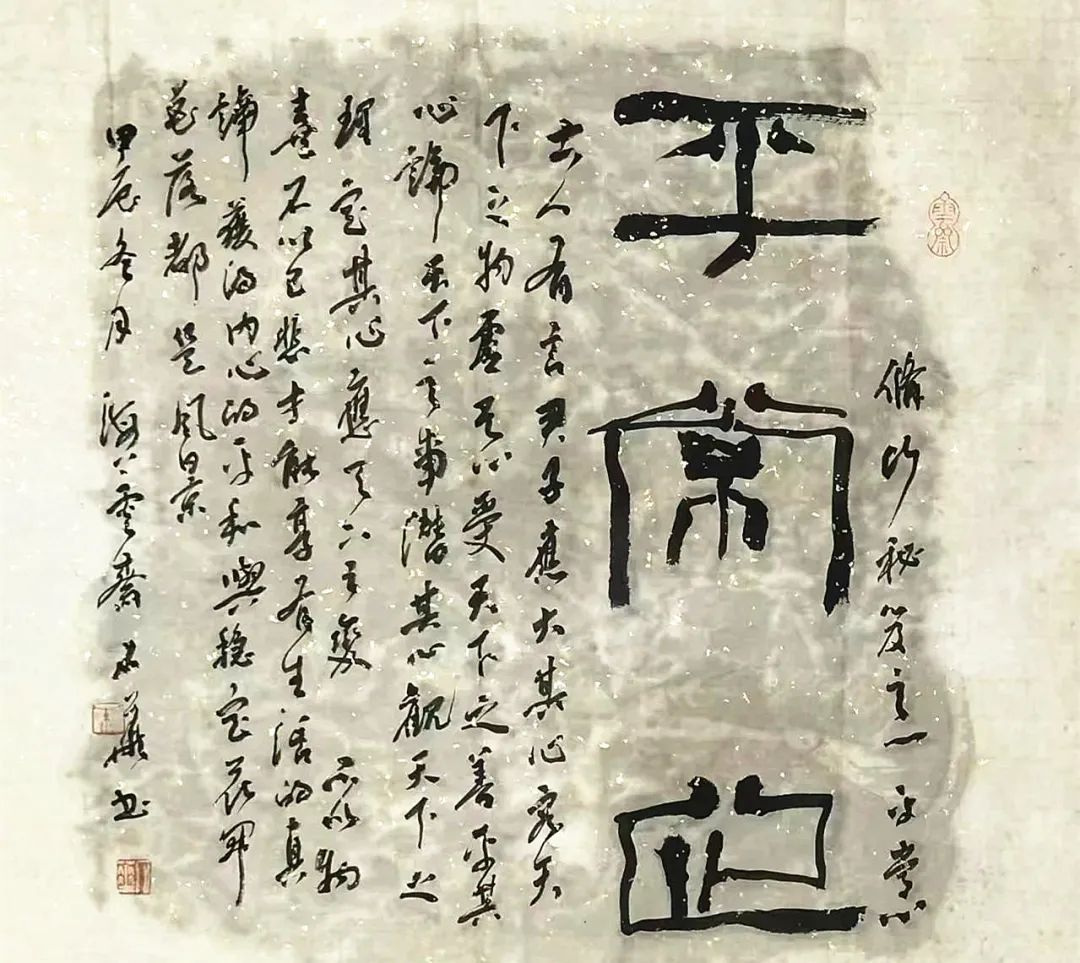 脩行秘笈之一 平常心
平常心
古人有言君子應大其心容天
下之物虛其心受天下之善平其
心論天下之事潛其心觀天下之
理定其心應天下之變 不以物
喜不以己悲才能享有生活的真
諦 獲得内心的平和與穩定花開
花落都是風景
甲辰冬月 雲齋 書